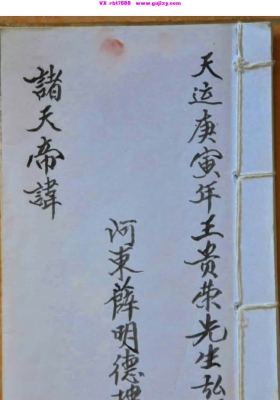 VX rht7688 www.gujizy.com
天运庚寅年王贵荣先生弘
河東薛明德
諸天帝諱